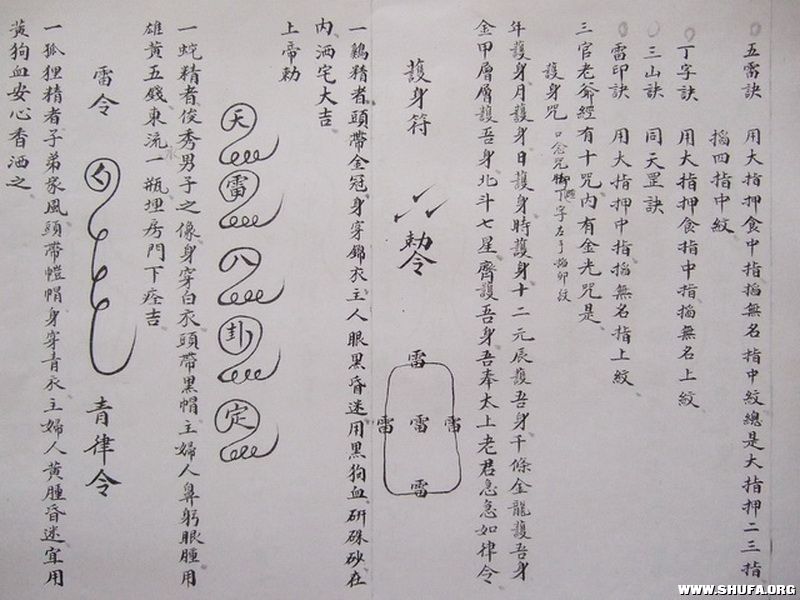 五雷訣　用大指押食中指掐無名指中紋總是大指押二三指
掐四指中紋
丁字訣　用大指押食指中指掐無名上紋
三山訣　同天罡訣
雷印訣　用大指押中指掐無名指上紋
三官老爺經有十咒內有金光咒是
護身咒　口念咒脚丁字左手掐卯紋
年護身月護身日護身時護身十二元辰護吾身千條金龍護吾身
金甲層層護吾身北斗七星齊護吾身吾奉太上老君急急如律令
護身符
敕令
雷
雷雷雷
雷
一鷄精者頭帶金冠身穿錦衣主人眼黑昏迷用黑狗血研硃砂在
內洒宅大吉
上帝勅
天
雷
八
卦
定
一蛇精者俊秀男子之像身穿白衣頭帶黑帽主婦人鼻躬眼腫用
雄黃五錢東流水一瓶埋房門下痊吉
雷令
青律令
一狐狸精者子弟家風頭帶帽身穿青衣主婦人黃腫昏迷宜用
黃狗血安心香洒之
WWW.SHUFA.ORG